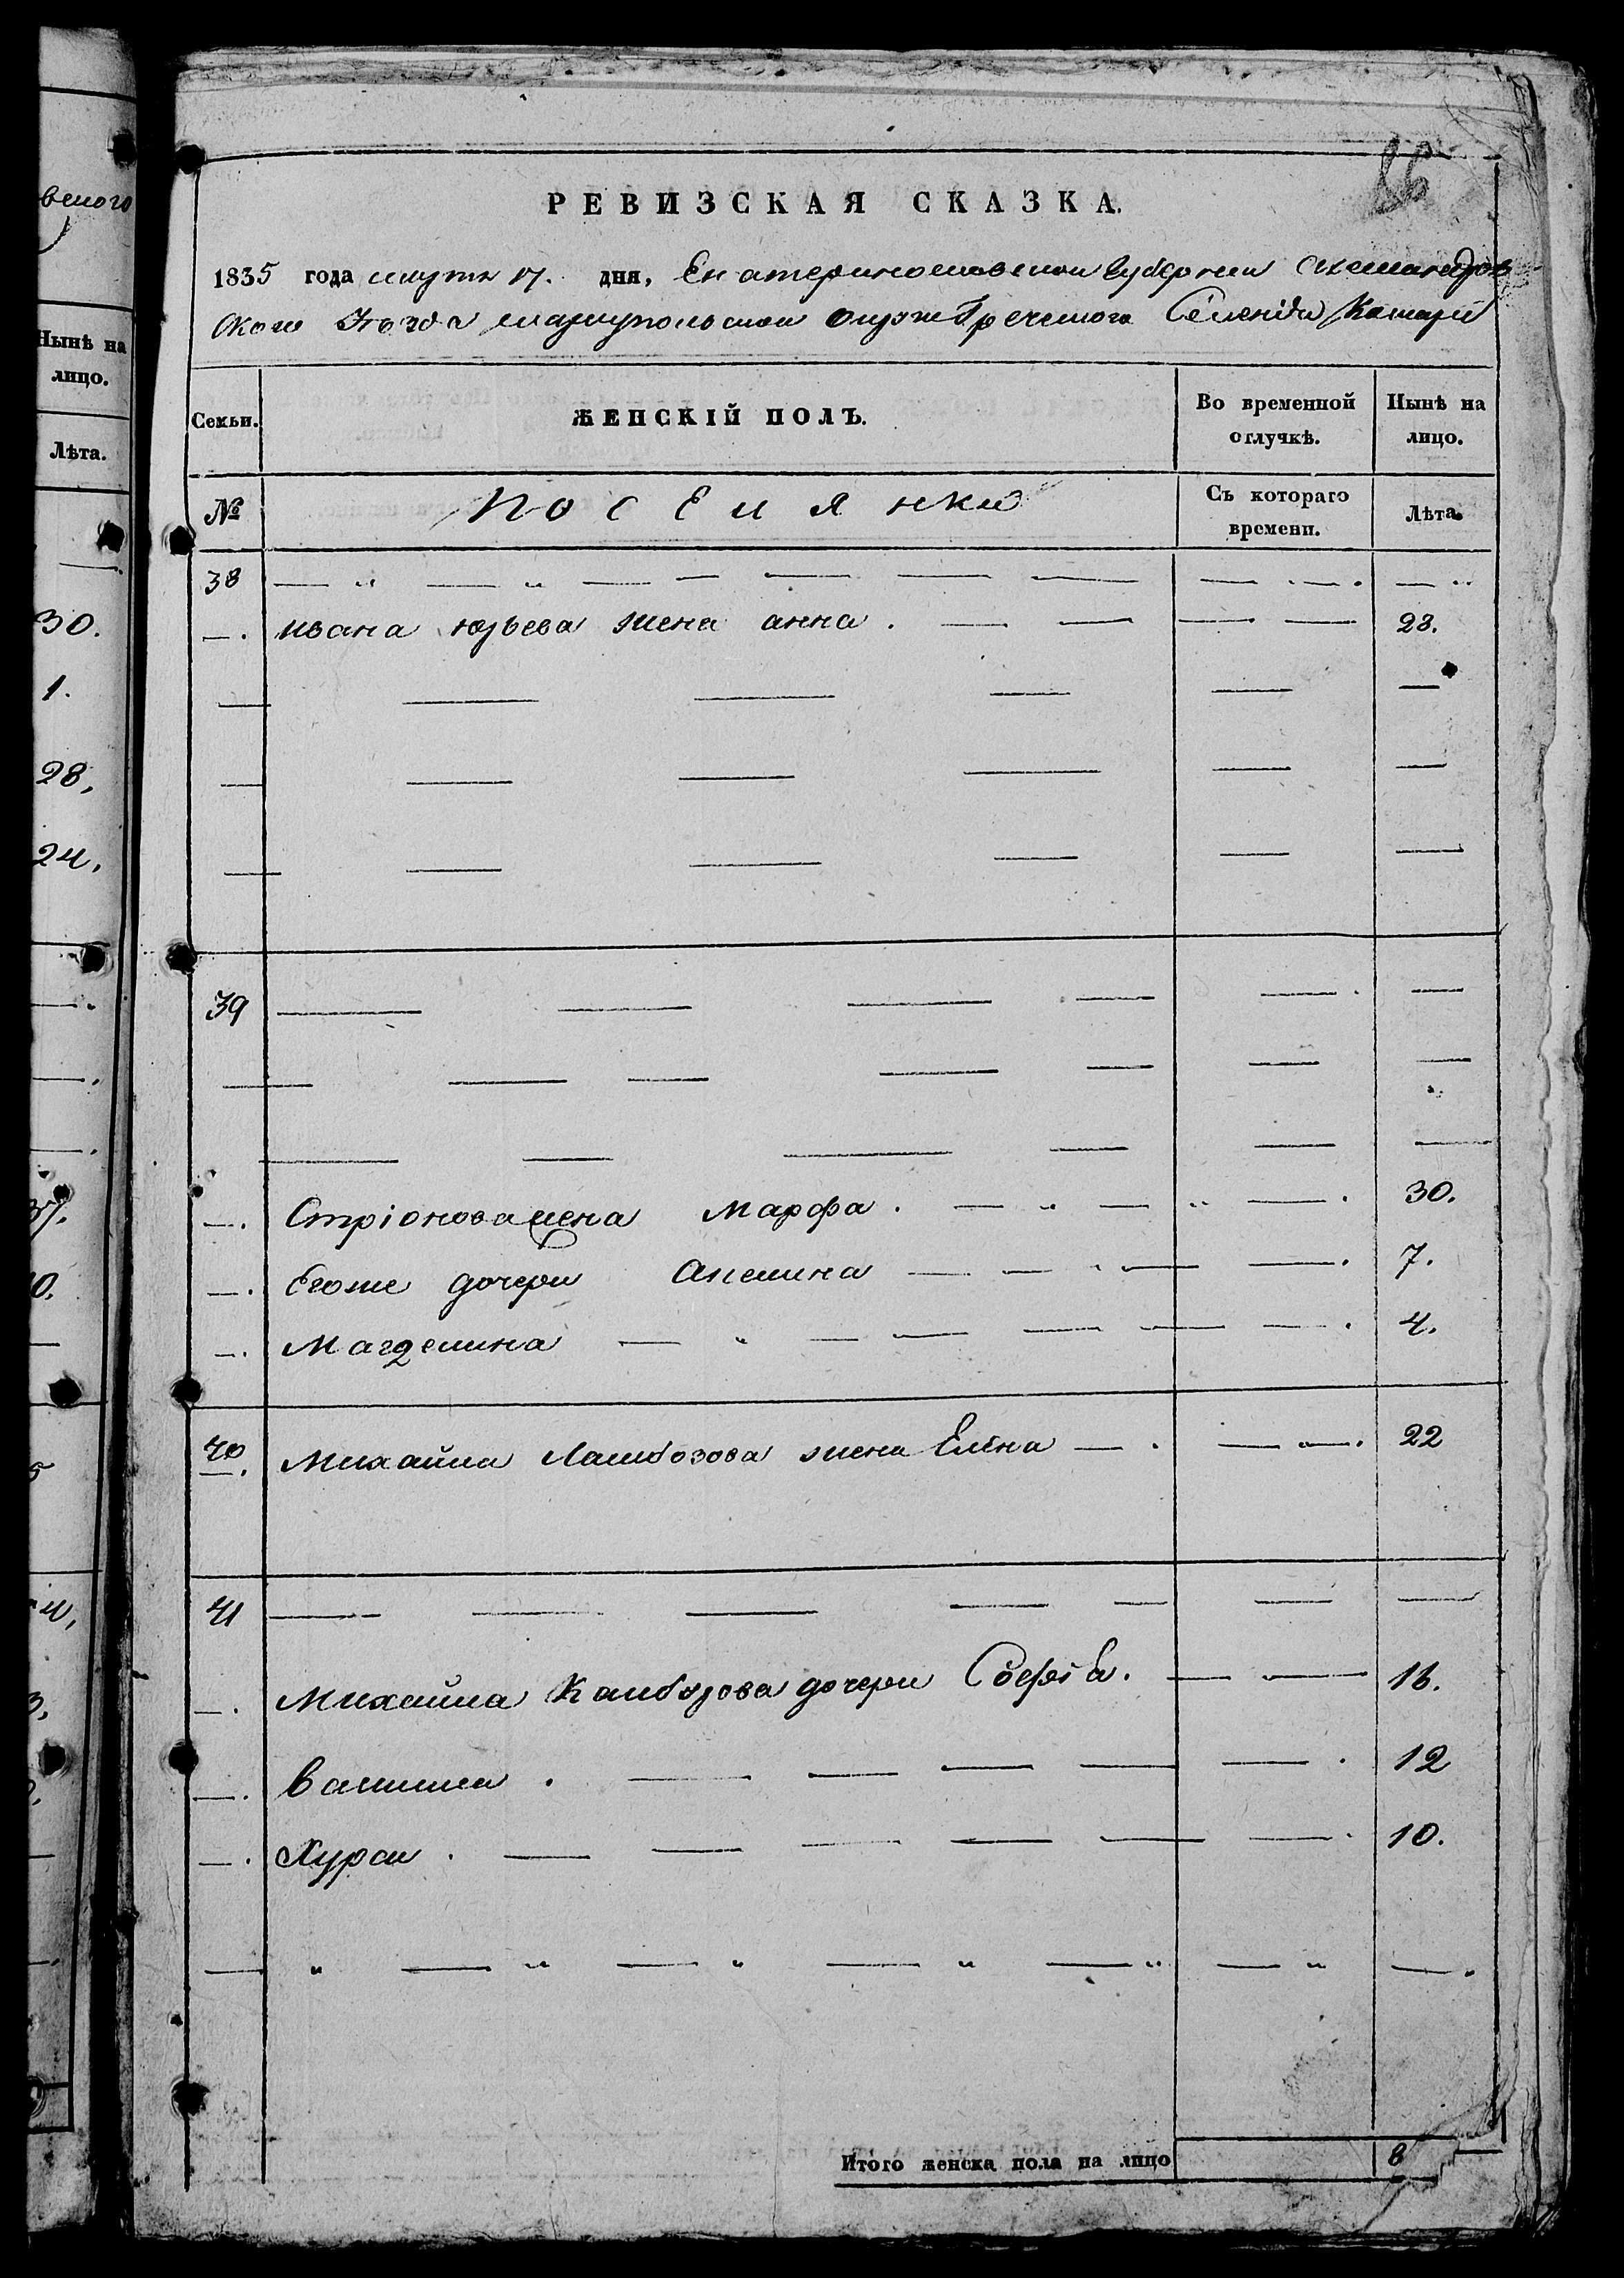 веного
Нынѣ на
лицо.
Лѣта.
30.
1.
28,
24,
РЕВИЗСКАЯ СКАЗКА.
1835 года марта 17. дня, Екатеринославской Губернии Александров
ского Уѣзда мариупольской округи Греческого Селенія
Семьи.
ЖЕНСКІЙ ПОЛЪ.
Во временной
отлучкѣ.
Нынѣ на
лицо.
№
Поселянки
Съ котораго
времени.
Лѣта.
38
ивана юрьева жена анна . 28.
39
Стріонова жена Марфа . 30.
Егоже дочери Акелина 7.
Магделина 4.
40 Михайла жена Елена 22
41
Михайла дочери Софія . 16.
Василиа . 12
Хурси . 10.
Итого женска пола на лицо 8